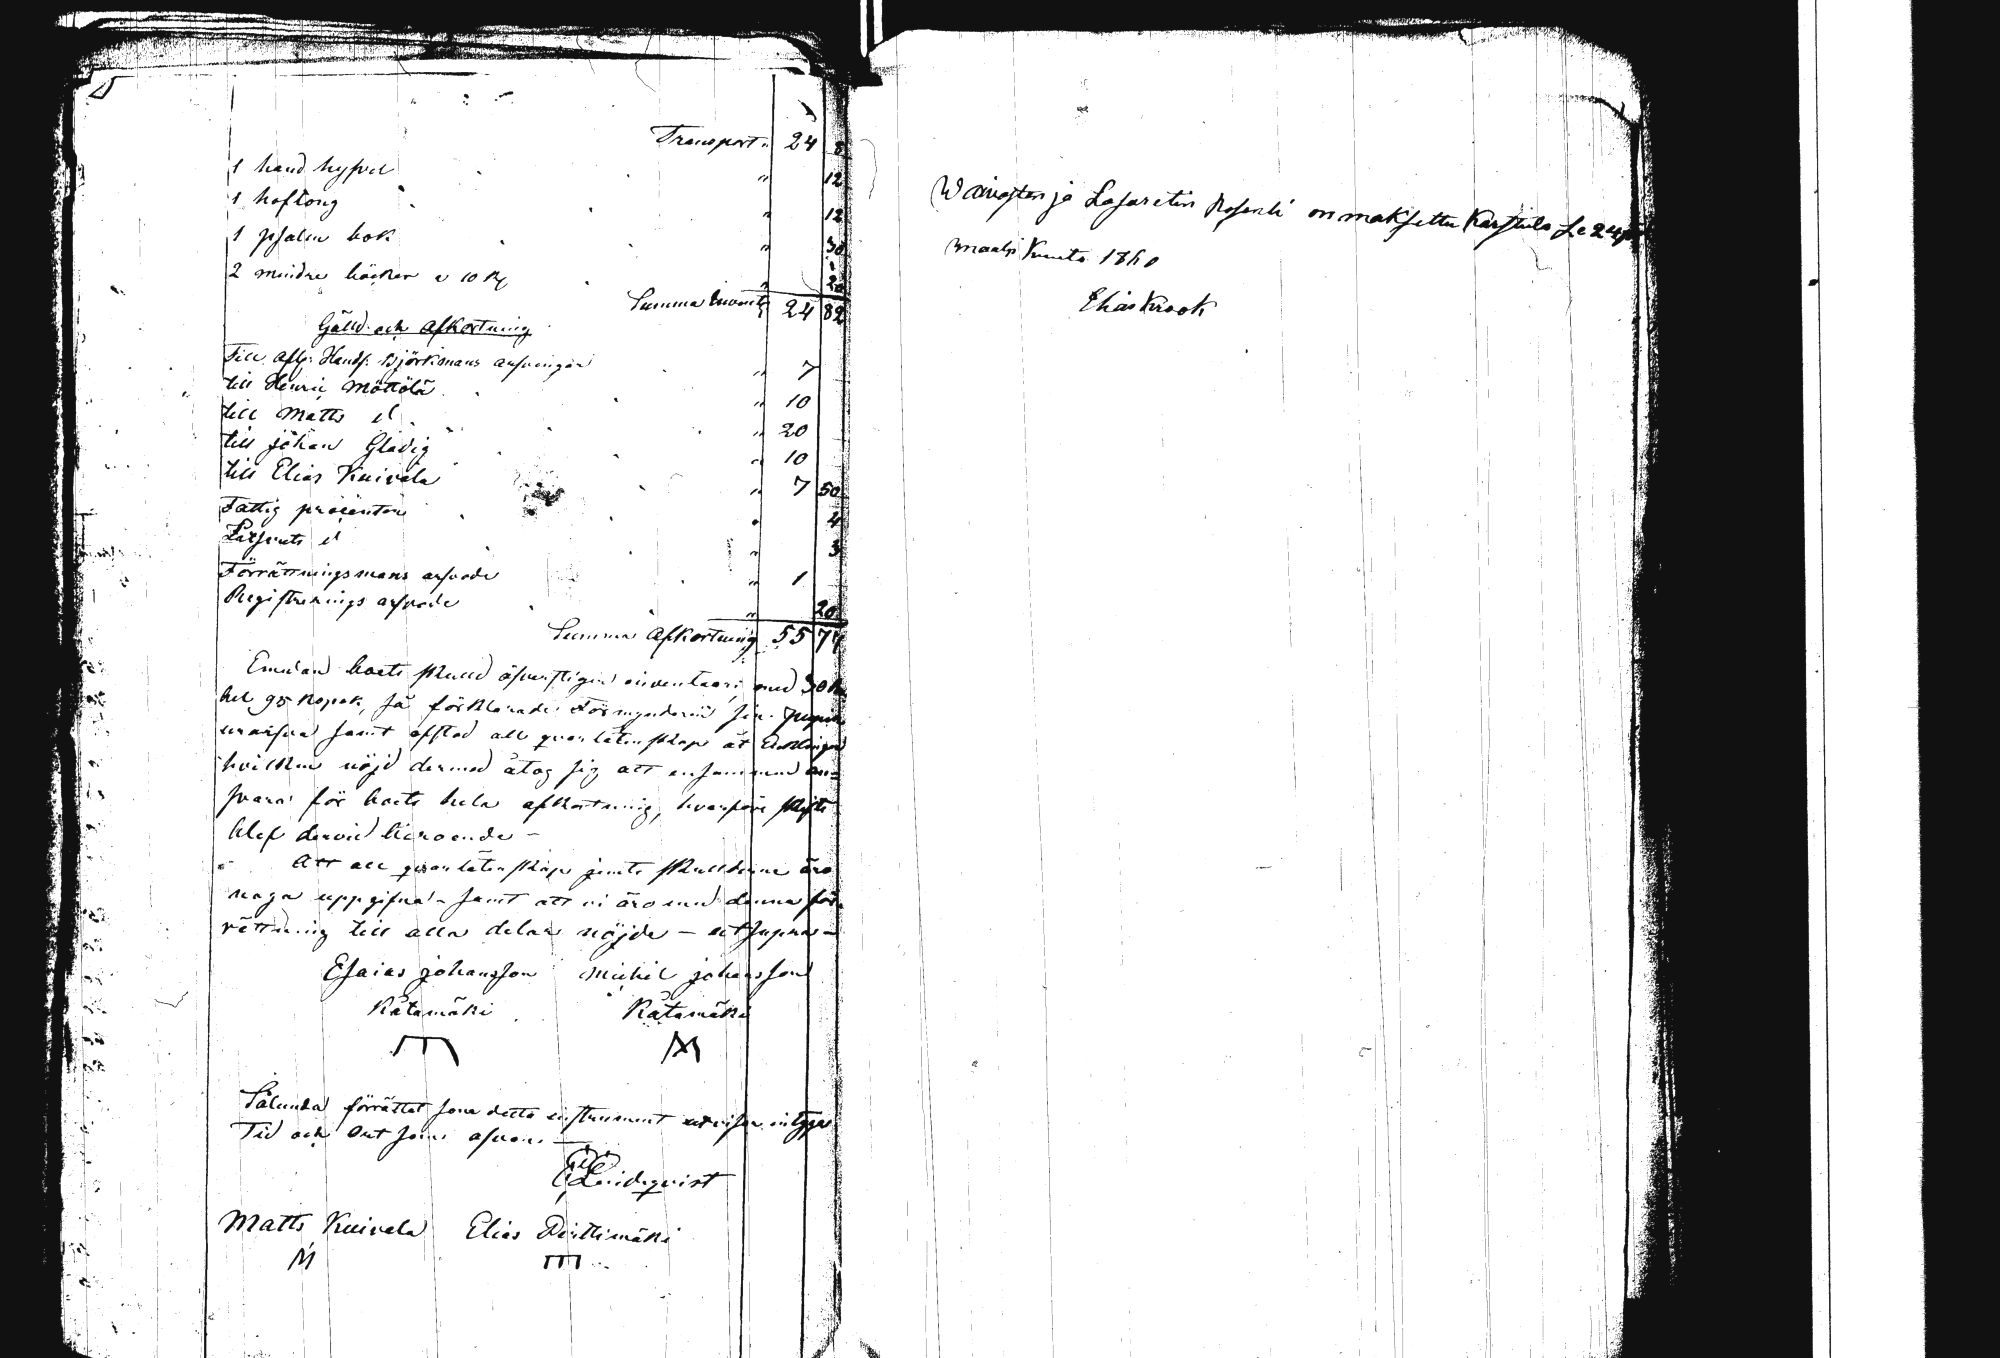 Transport " 24 8
1 hand hyfvel " 12
1 hoftong " 12
1 psalm bok " 30
2 mindre böcker a 10 K " 20
Summa Invent: 24 82
Gälld och afkortning
Till afl: Handl: Björkmans arfvingar " 7
till Henric Möttölä " 10
till Matts d " 20
till Johan Gladig " 10
till Elias Kuivala " 7 50
Fattig procenten " 4
Lazarets d " 3
Förrättningsmans arfvode " 1
Registrerings arfvode " 20
Summa Afkortning 55 77
Emedan boets skuld öfverstiger inventarii med 30 Ru
bel 95 Kopek, så förklarade Förmyndaren sin
urarfva samt afstod all qvarlåtenskap åt Enklingen
hvilken nöjd dermed åtog sig att ensammen an=
svara för boets hela afkortning, hvarföre skifte
blef dervid beroende –
Att all qvarlåtenskap jemte skulderne äro
noga uppgifna – samt att vi äro med denna för=
rättning till alla delar nöjde –
Esaias Johansson Michel Johansson
Råtamäki Råtamäki
Sålunda förrättat som detta instrument utvisar intygar
Tid och Ort som ofvan.
Lindqvist
Matts Kuivala Elias Penttimäki
M
Waivasten ja Lasaretin Rosenti on maksettu Karstula
maalis Kuuta 1860
Elias Krook